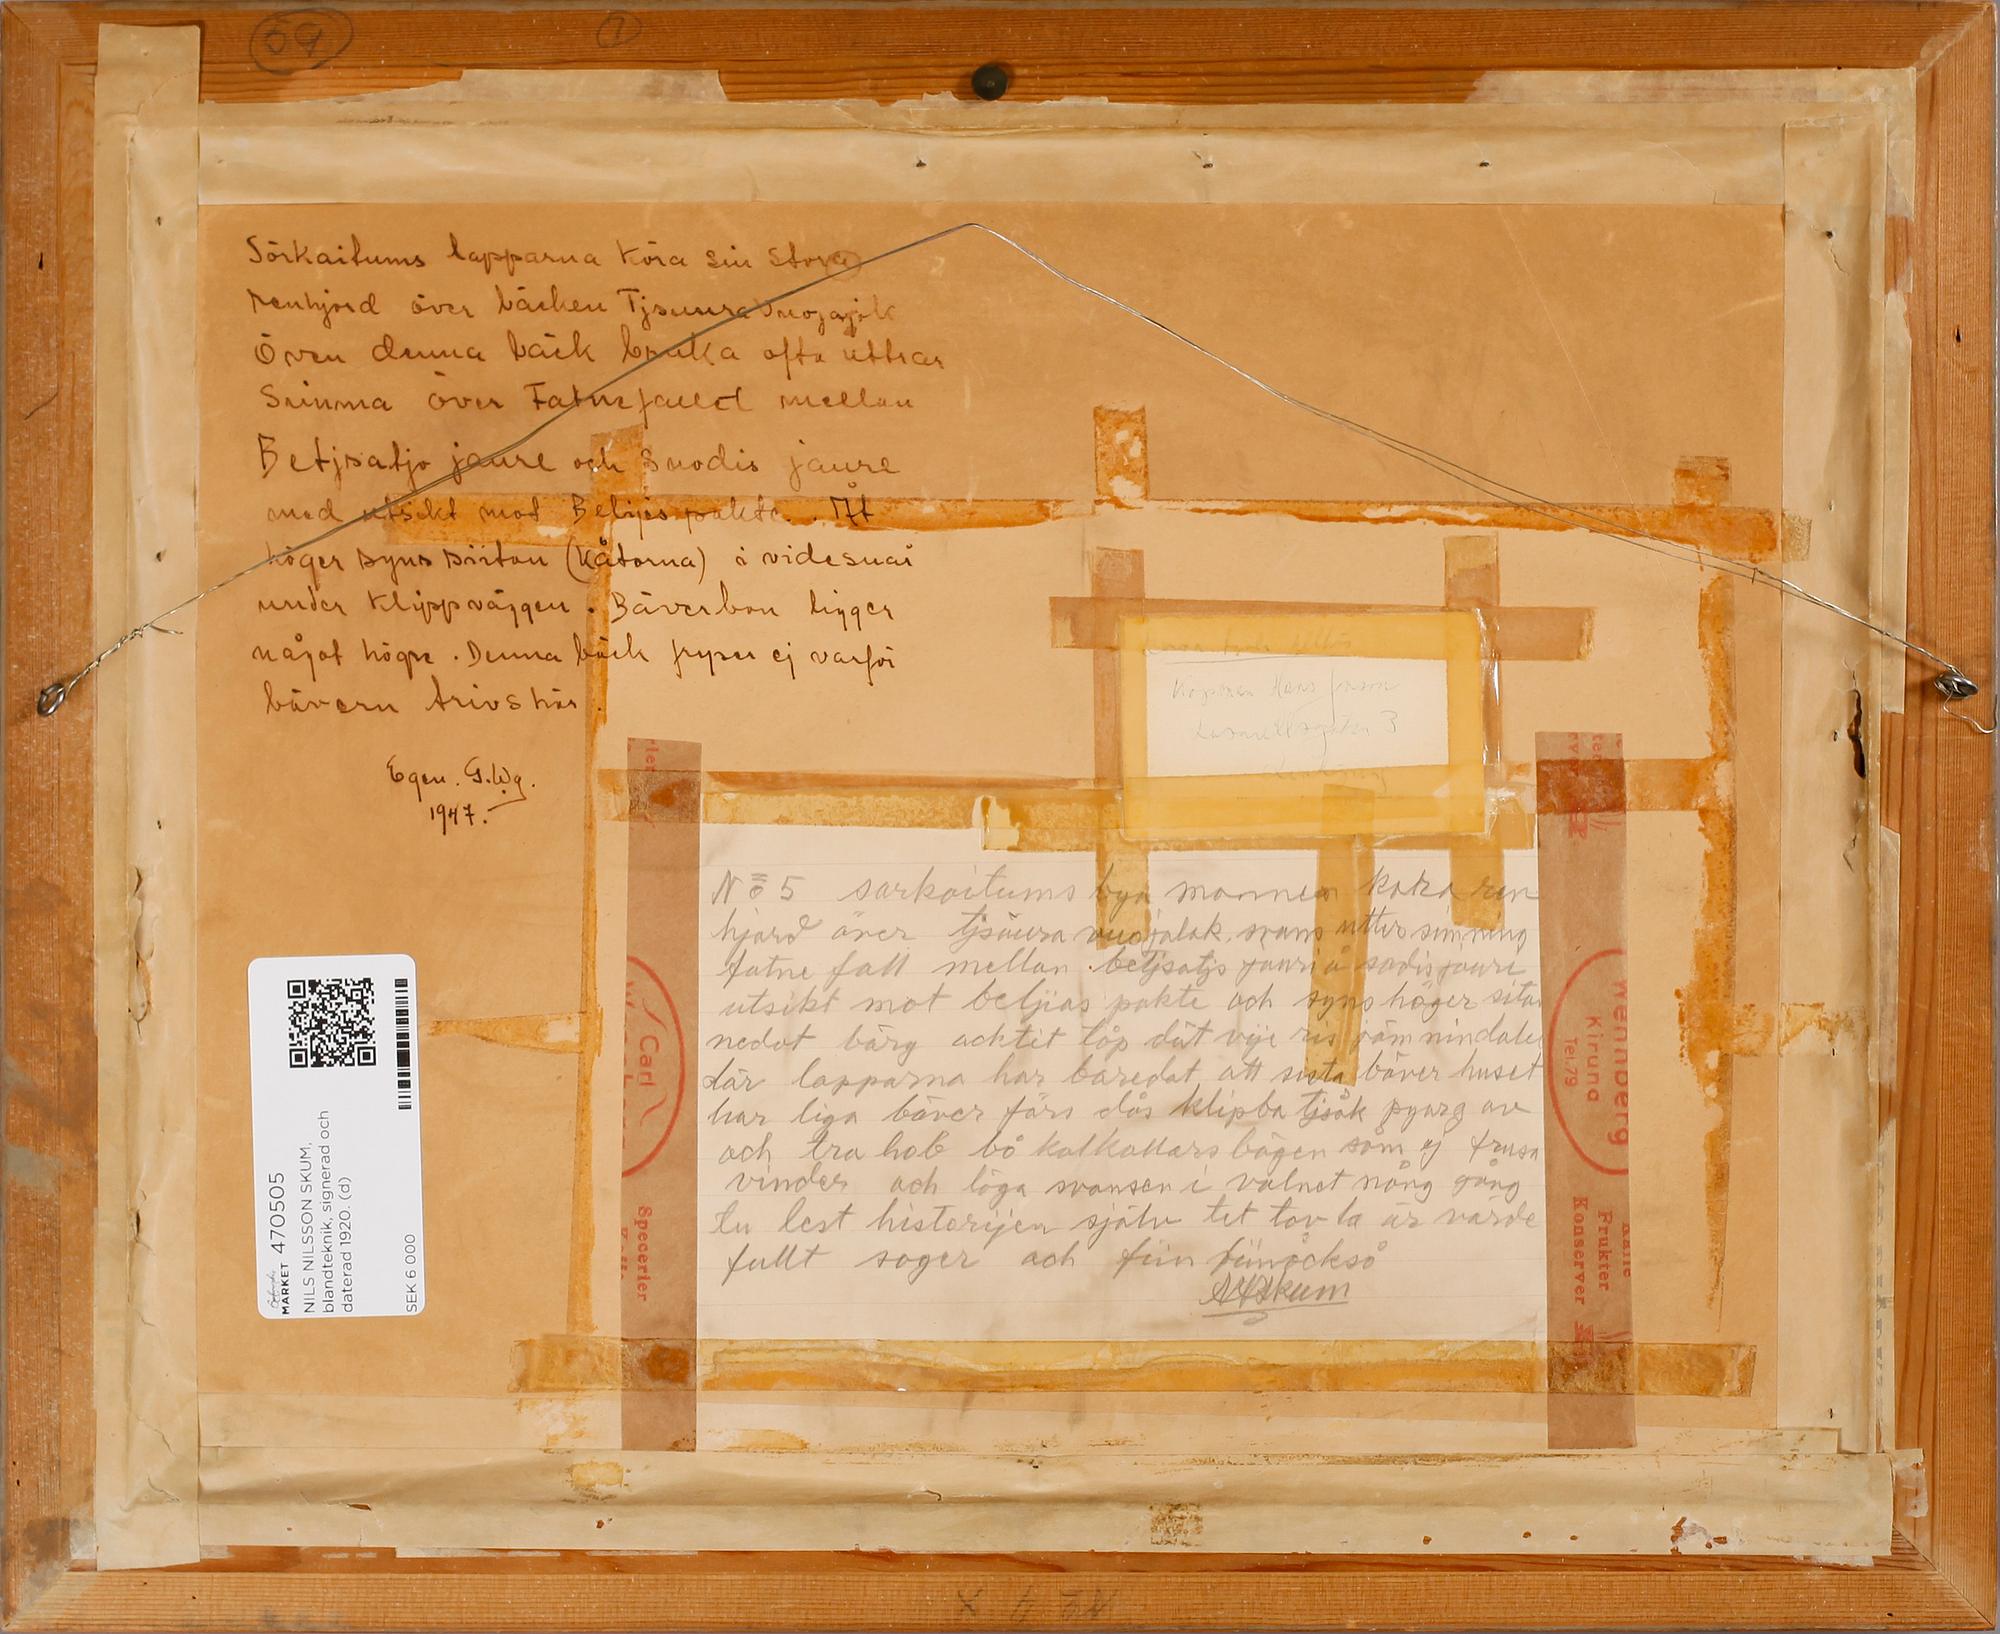 59
Sörkaitums lapparna köra sin stora
renhjord över bäcken Tjsuuravuojajok
Över denna bäck bruka ofta uttrar
Simma över Fatnefallet mellan
Betjsatjo jaure och Suodis jaure
med utsikt mot Beljas pakte. Åt
höger syns siitan (kåtorna) i videsnår
under klippväggen. Bäverbon ligger
något högre. Denna bäck fryser ej varför
bävern trivs här.
Egen. G.Wg.
1947.
Köpman Hans
3
No 5 sarkaitums bya mannen kara ren
hjard över tjsäura vuojalak, svans utter simning
fatne fall mellan betjsatjs jauri å sadisjauri
utsikt mot beljias pakte och syns höger sitan
nedat bärg acktit låp dät vije ris jämnindalen
där lapparna har baredat att sista bäver huset
har liga bäver färs dås klipba tjsåk pyarg av
och tra hob bå kalkallars bägen såm ej frusa
vinder och låga svansen i valnet nång gång
tu lest historijen själv tet tavla är värde
fullt sager och fin finöckså
NNSkum
Carl
Specerier
Wennberg
Kiruna
Tel.79
Frukter
Konserver
MARKET 470505
NILS NILSSON SKUM,
blandteknik, signerad och
daterad 1920. (d)
SEK 6 000